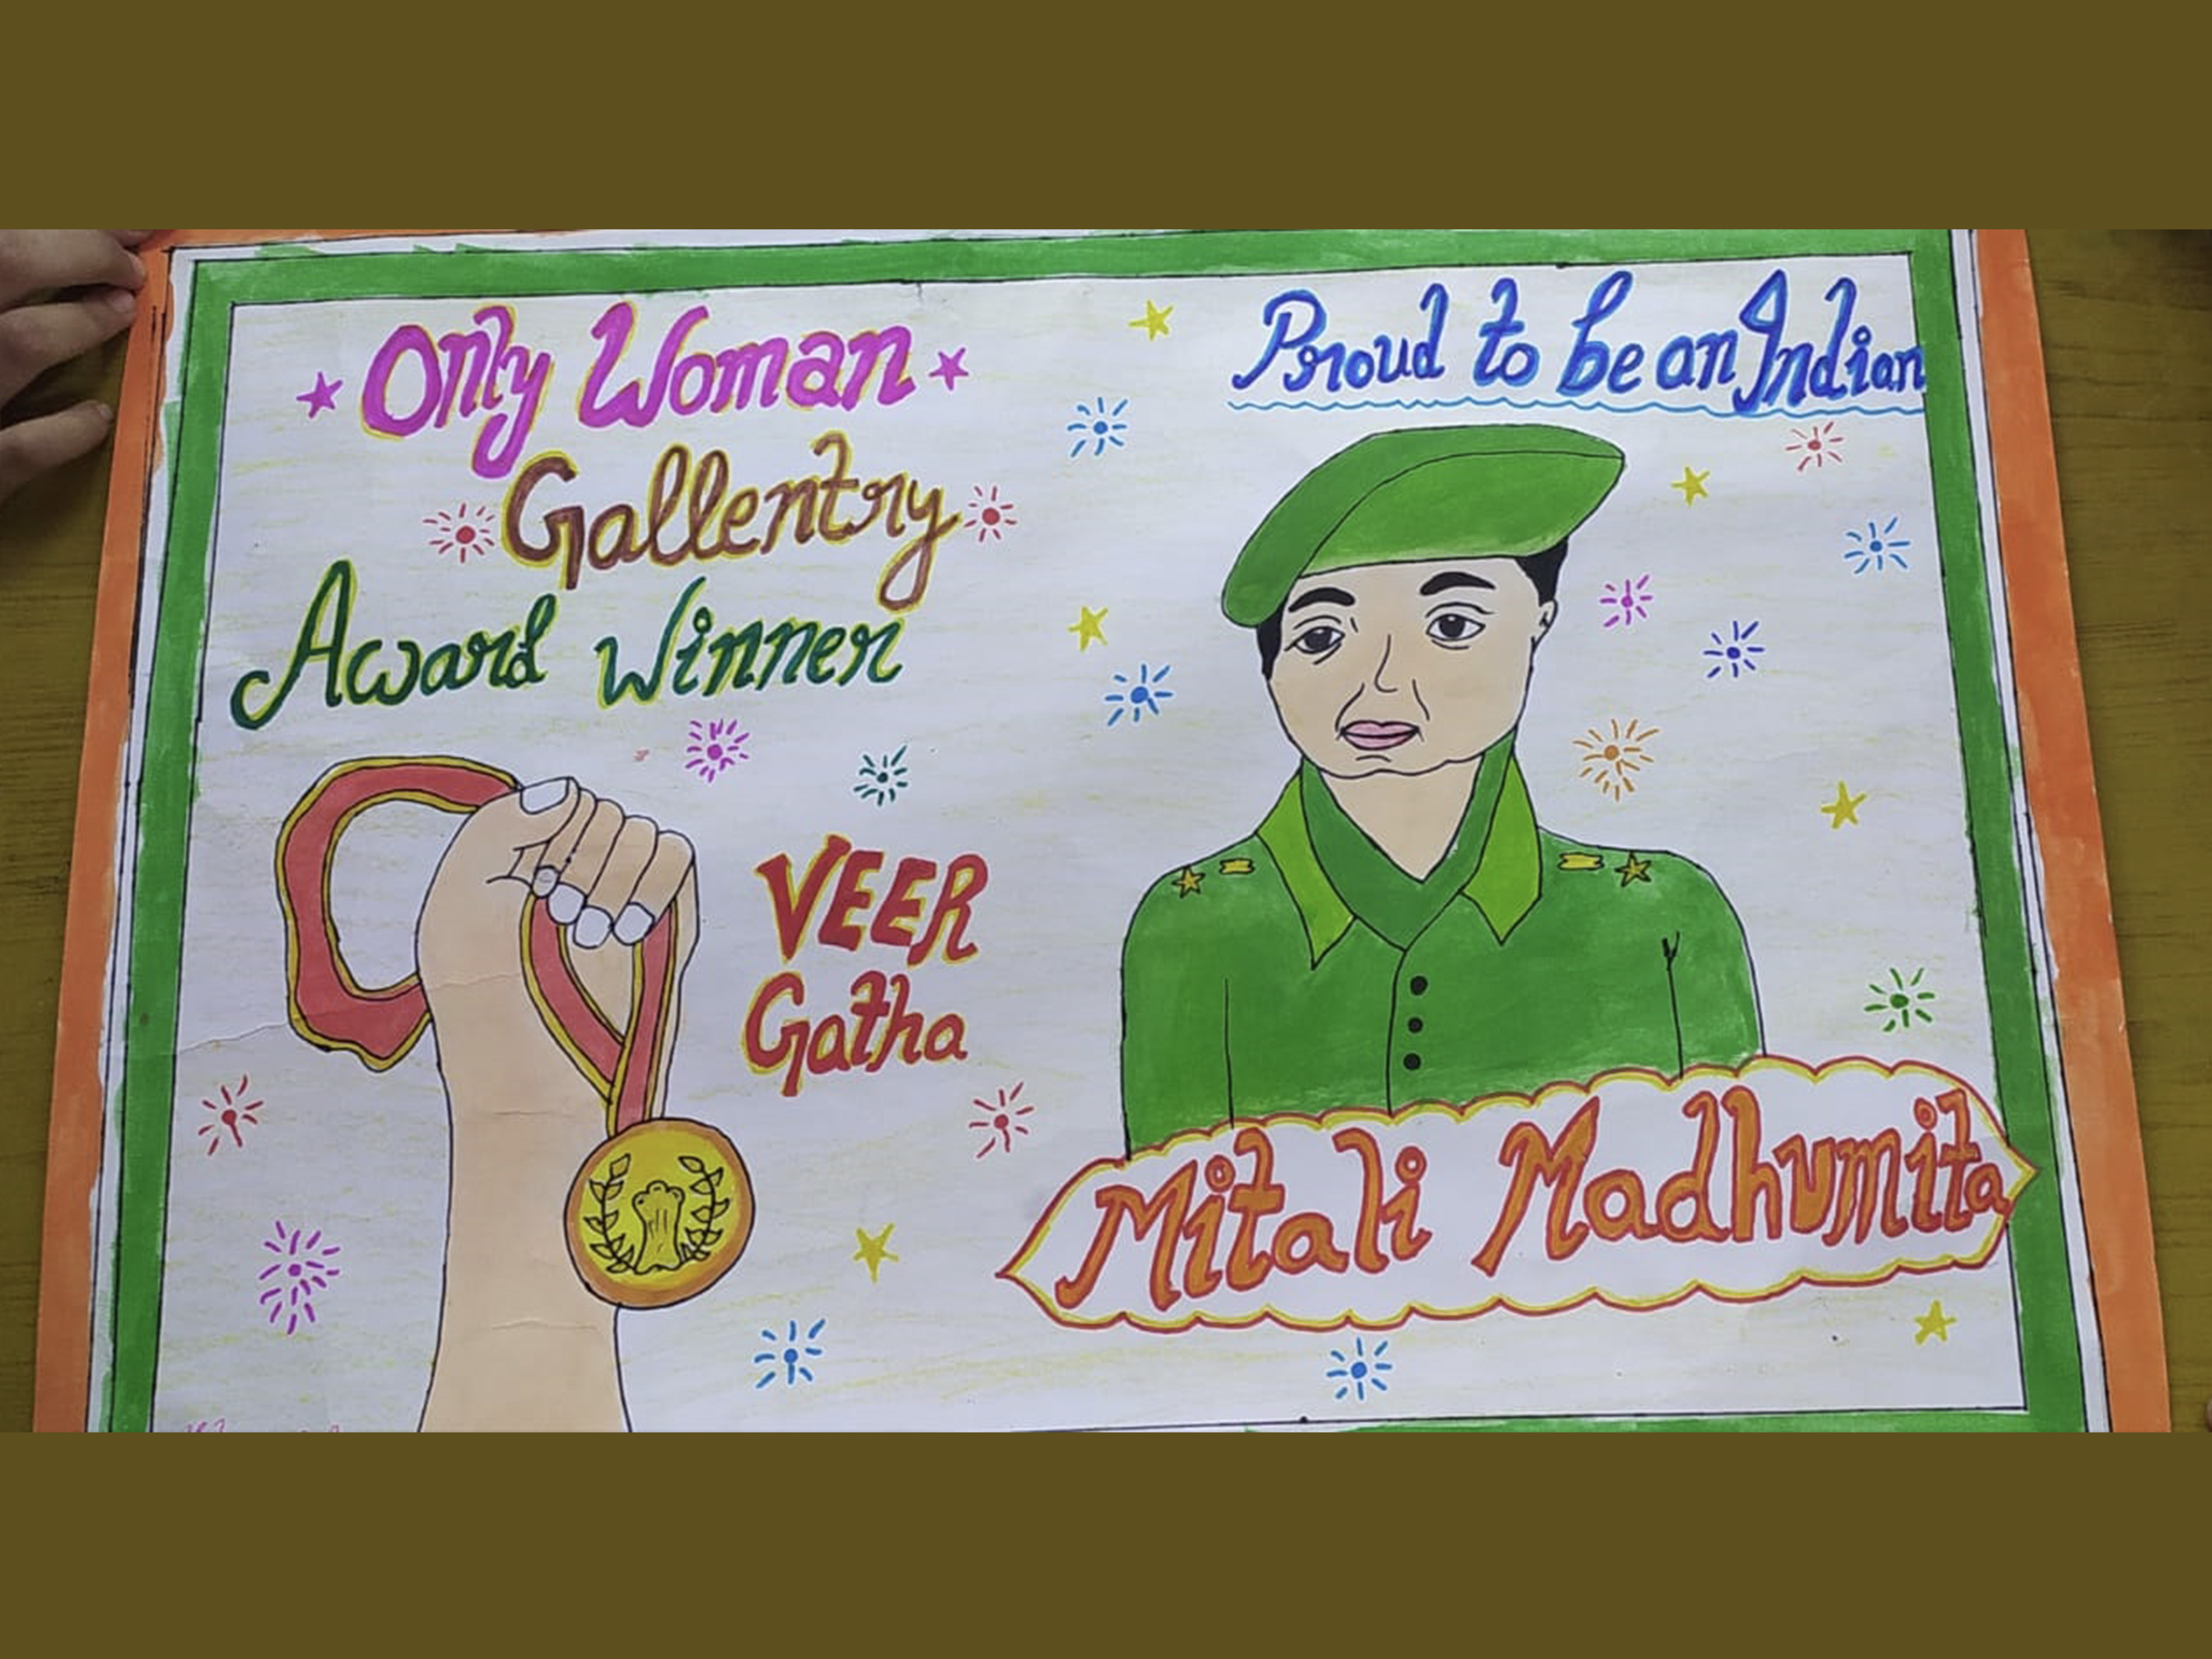 Only Woman
Gallentry
Award Winner
VEER
Gatha
Proud to be an Indian
Mitali Madhumita